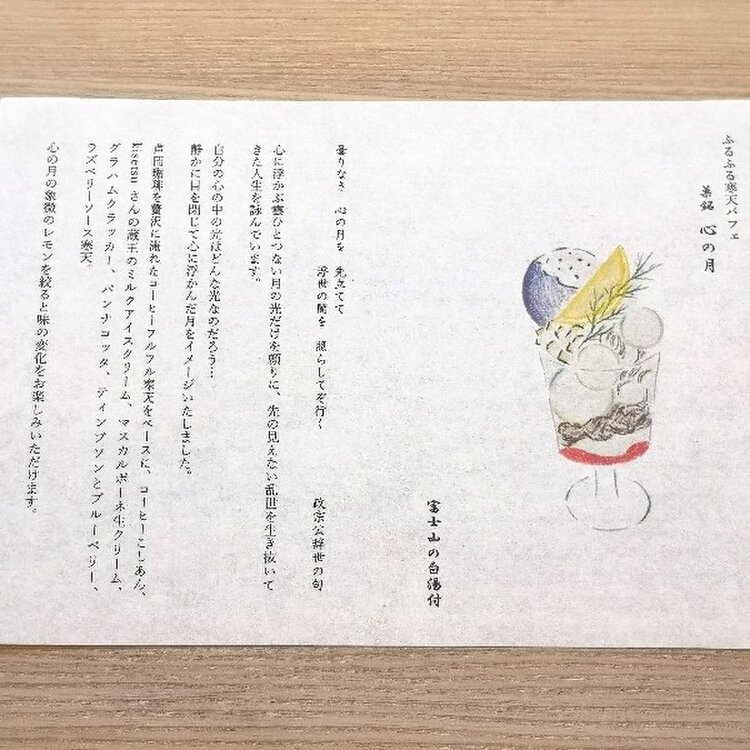 ふるふる寒天パフェ
菓銘 心の月
富士山の白湯付
曇りなき 心の月を 先立てて
浮世の闇を 照らしてぞ行く
政宗公辞世の句
心に浮かぶ曇ひとつない月の光だけを頼りに、先の見えない乱世を生き抜いて
きた人生を詠んでいます。
自分の心の中の光はどんな光なのだろう…
静かに目を閉じて心に浮かんだ月をイメージいたしました。
珈琲を贅沢に淹れたコーヒーフルフル寒天をベースに、コーヒーこしあん、
kisetsuさんの蔵王のミルクアイスクリーム、マスカルポーネ生クリーム、
グラハムクラッカー、パンナコッタ、ティンブソンとブルーベリー、
ラズベリーソース寒天。
心の月の象徴のレモンを絞ると味の変化をお楽しみいただけます。